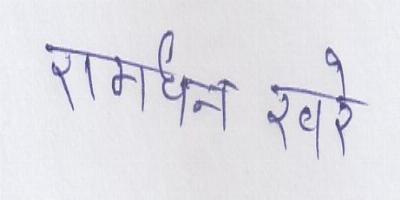 रामधन खरे